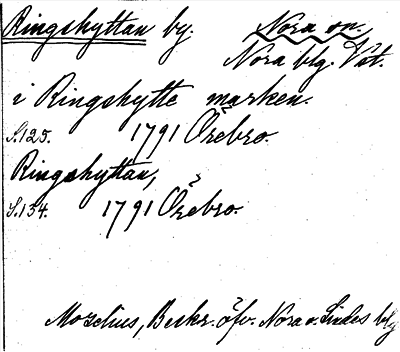 Ringshyttan by. Nora sn.
Nora blg. Vstl.
i Ringshytte marken.
S.125. 1791 Örebro.
Ringshyttan,
S.134. 1791 Örebro.
Mozelius, Beskr. öfv. Nora o. Lindes blg